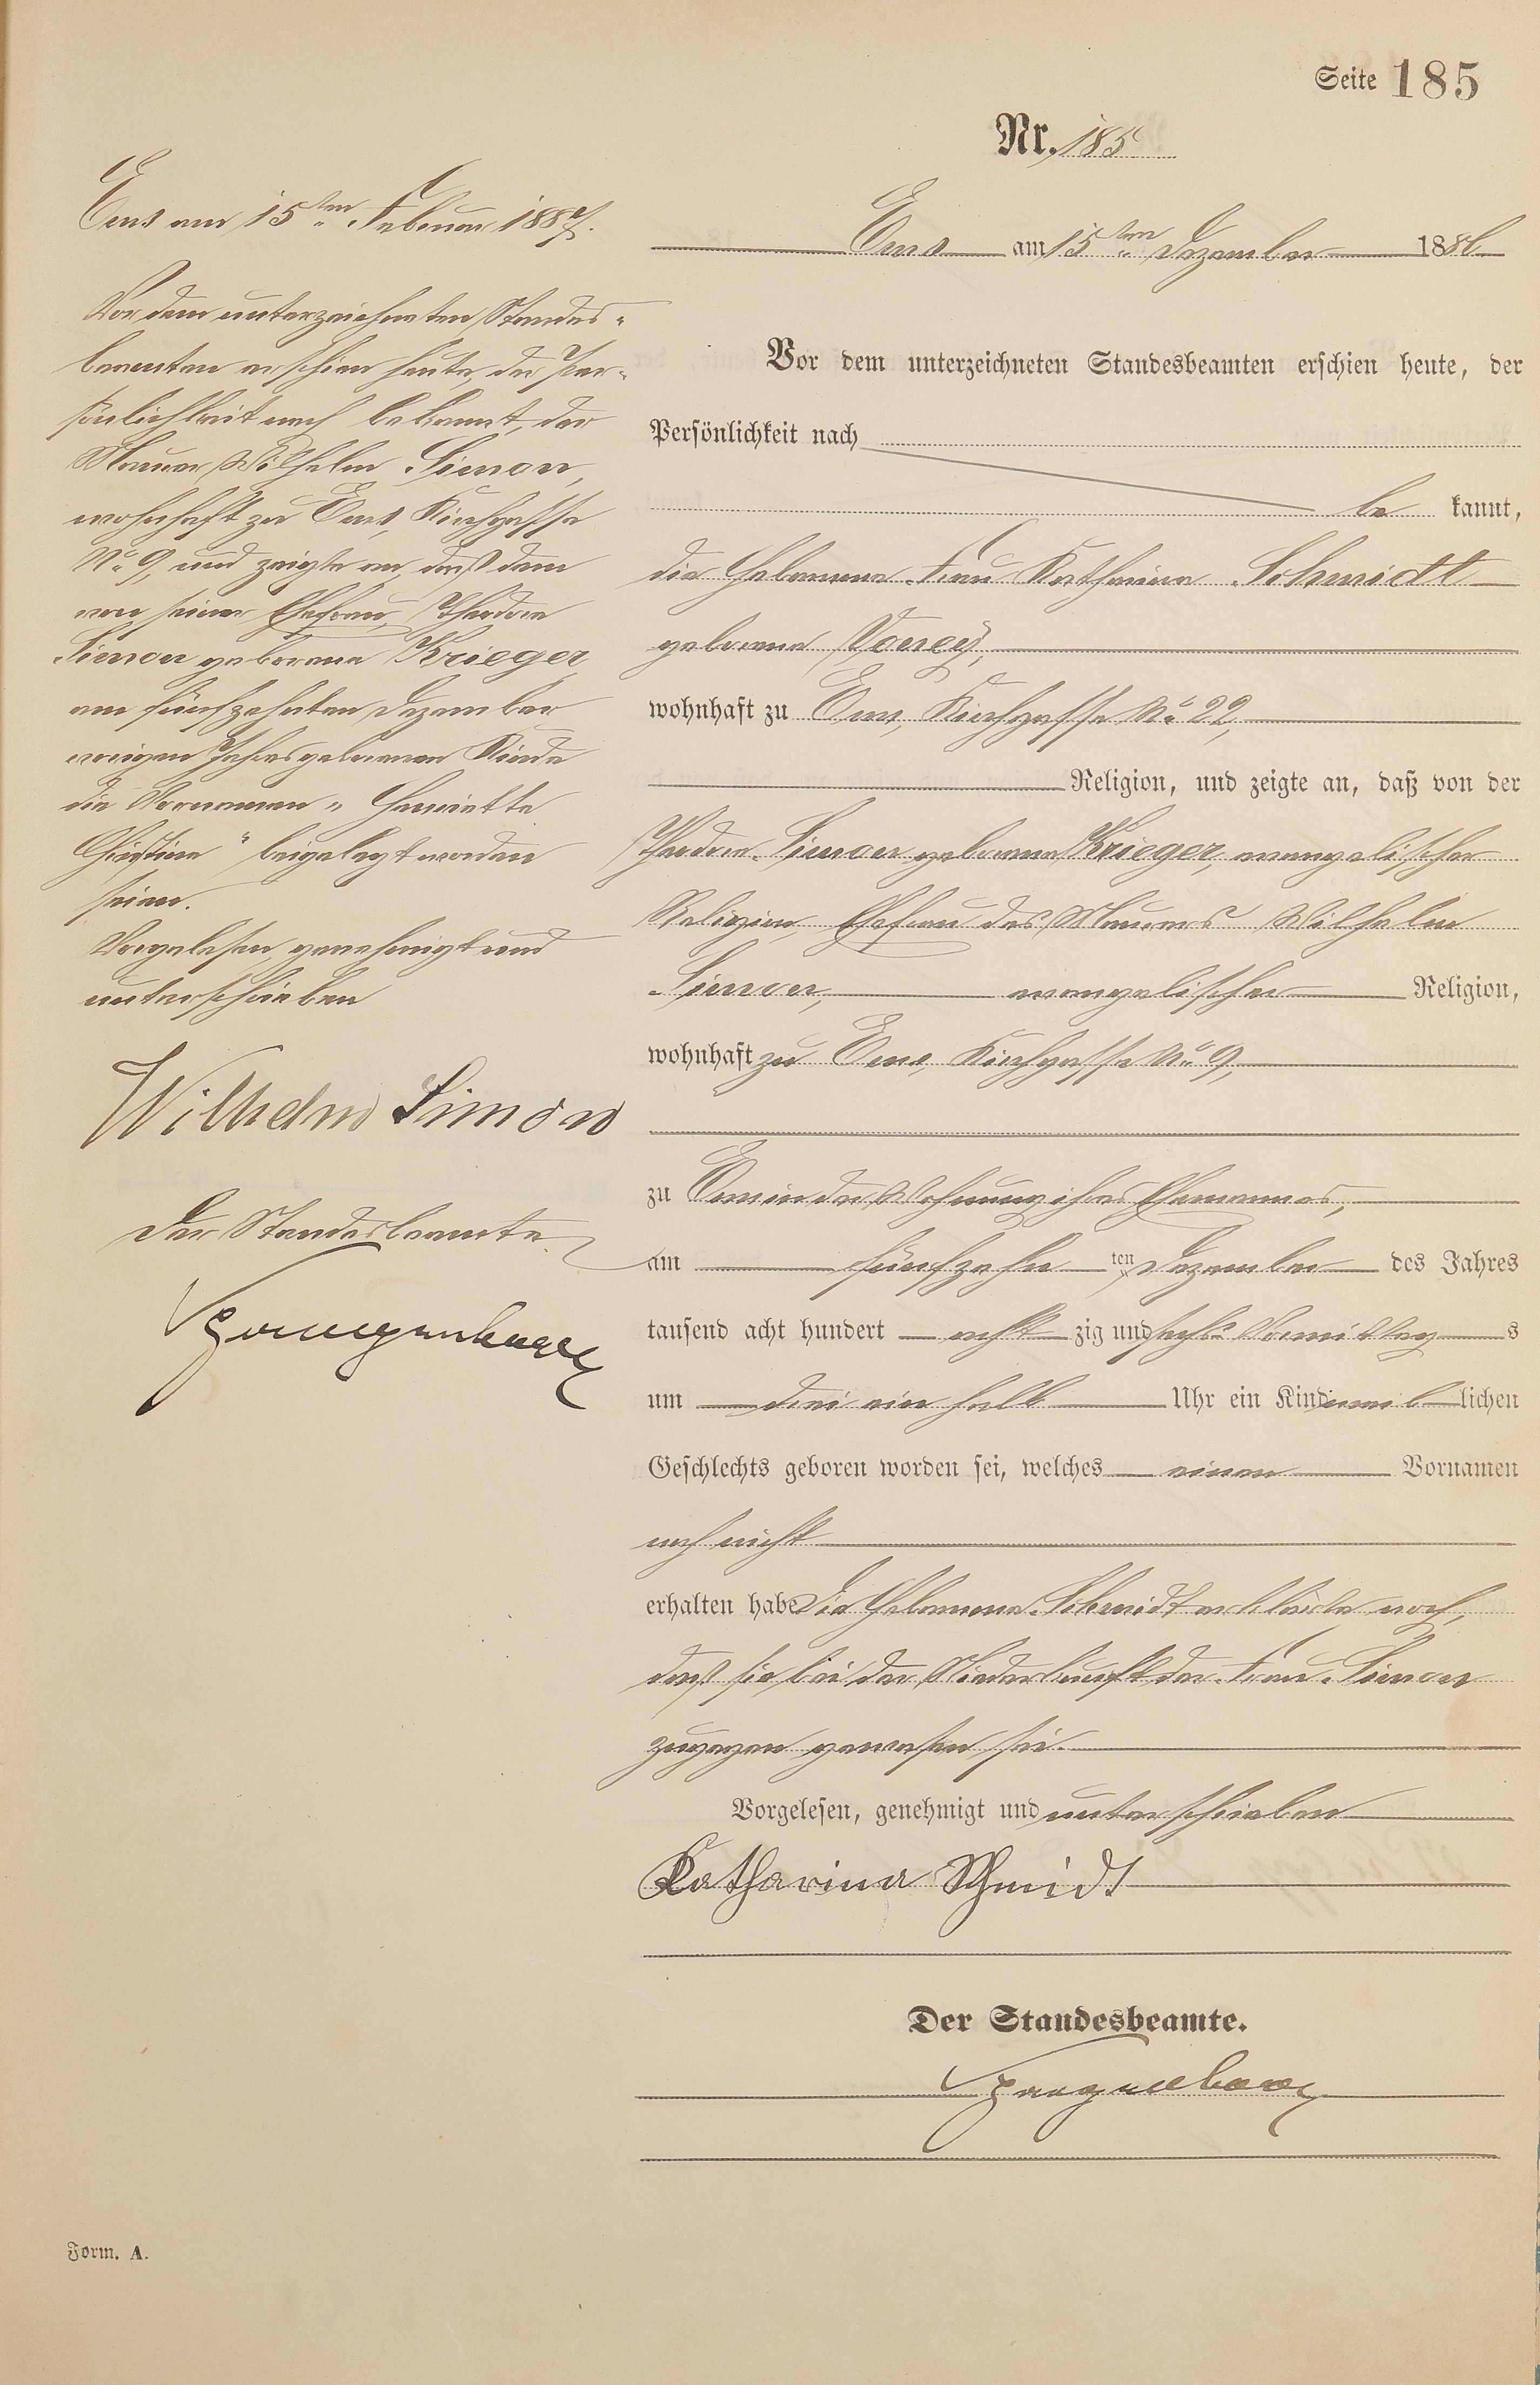 Seite 185
Nr. 185
Ems am 15ten Februar 1887.
Vor dem unterzeichneten Standes-
beamten erschien heute, der Per-
sönlichkeit nach bekannt, der
Maurer Wilhelm Simon,
wohnhaft zu Ems, Kirchgasse
No 9, und zeigte an, daß dem
von seiner Ehefrau, Theodore
Simon geborene Krieger
am fünfzehnten Dezember
vorigen Jahres geborenen Kinde
die Vornamen „Henriette
Christine“ beigelegt worden
seien.
Vorgelesen, genehmigt und
unterschrieben
Wilhelm Simon
Der Standesbeamte.
Ems am 15ten Dezember 1886
Vor dem unterzeichneten Standesbeamten erschien heute, der
Persönlichkeit nach
be kannt,
die Hebamme Frau Katharina Schmidt
geborene
wohnhaft zu Ems, Kirchgasse No 22,
Religion, und zeigte an, daß von der
Theodore Simon geborene Krieger, evangelischer
Religion, Ehefrau des Maurers Wilhelm
Simon, evangelischer Religion,
wohnhaft zu Ems, Kirchgasse No 9,
zu Ems in der Wohnung ihres Ehemannes,
am fünfzehn ten Dezember des Jahres
tausend acht hundert acht zig und sechs Vormittag s
um drei ein halb Uhr ein Kind weib lichen
Geschlechts geboren worden sei, welches einen Vornamen
noch nicht
erhalten habe Die Hebamme Schmidt erklärte noch,
daß sie bei der Niederkunft der Frau Simon
zugegen gewesen sei.
Vorgelesen, genehmigt und unterschrieben
Katharina Schmidt
Der Standesbeamte.
Form. A.